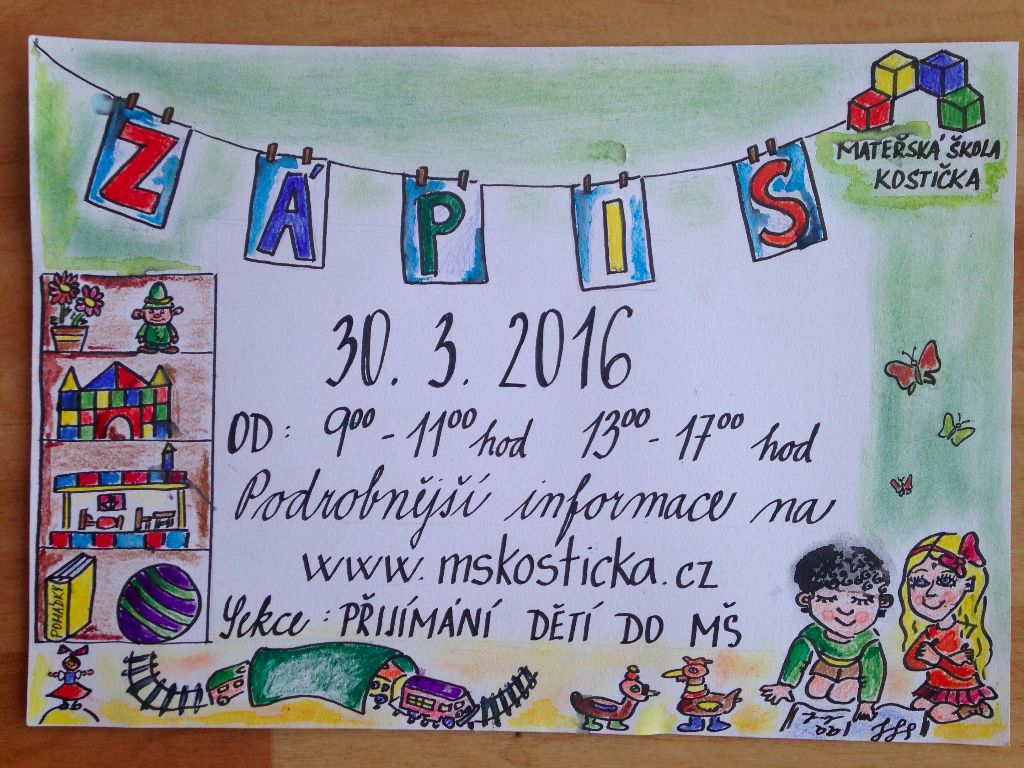 ZÁPIS
MATEŘSKÁ ŠKOLA
KOSTIČKA
30. 3. 2016
OD: 9⁰⁰ - 11⁰⁰ hod 13⁰⁰ - 17⁰⁰ hod
Podrobnější informace na
www.mskosticka.cz
Sekce: PŘIJÍMÁNÍ DĚTÍ DO MŠ
POHÁDKY